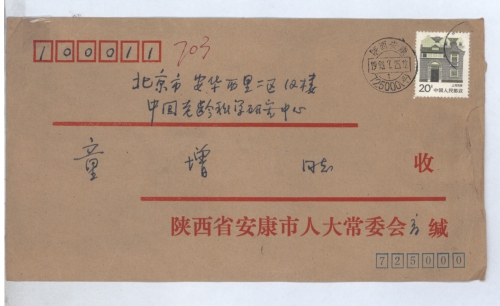 100011 703
北京市 安华西里二区18楼
中国老龄科学研究中心
童 增 同志 收
陕西省安康市人大常委会 缄
725000
20分 中国人民邮政